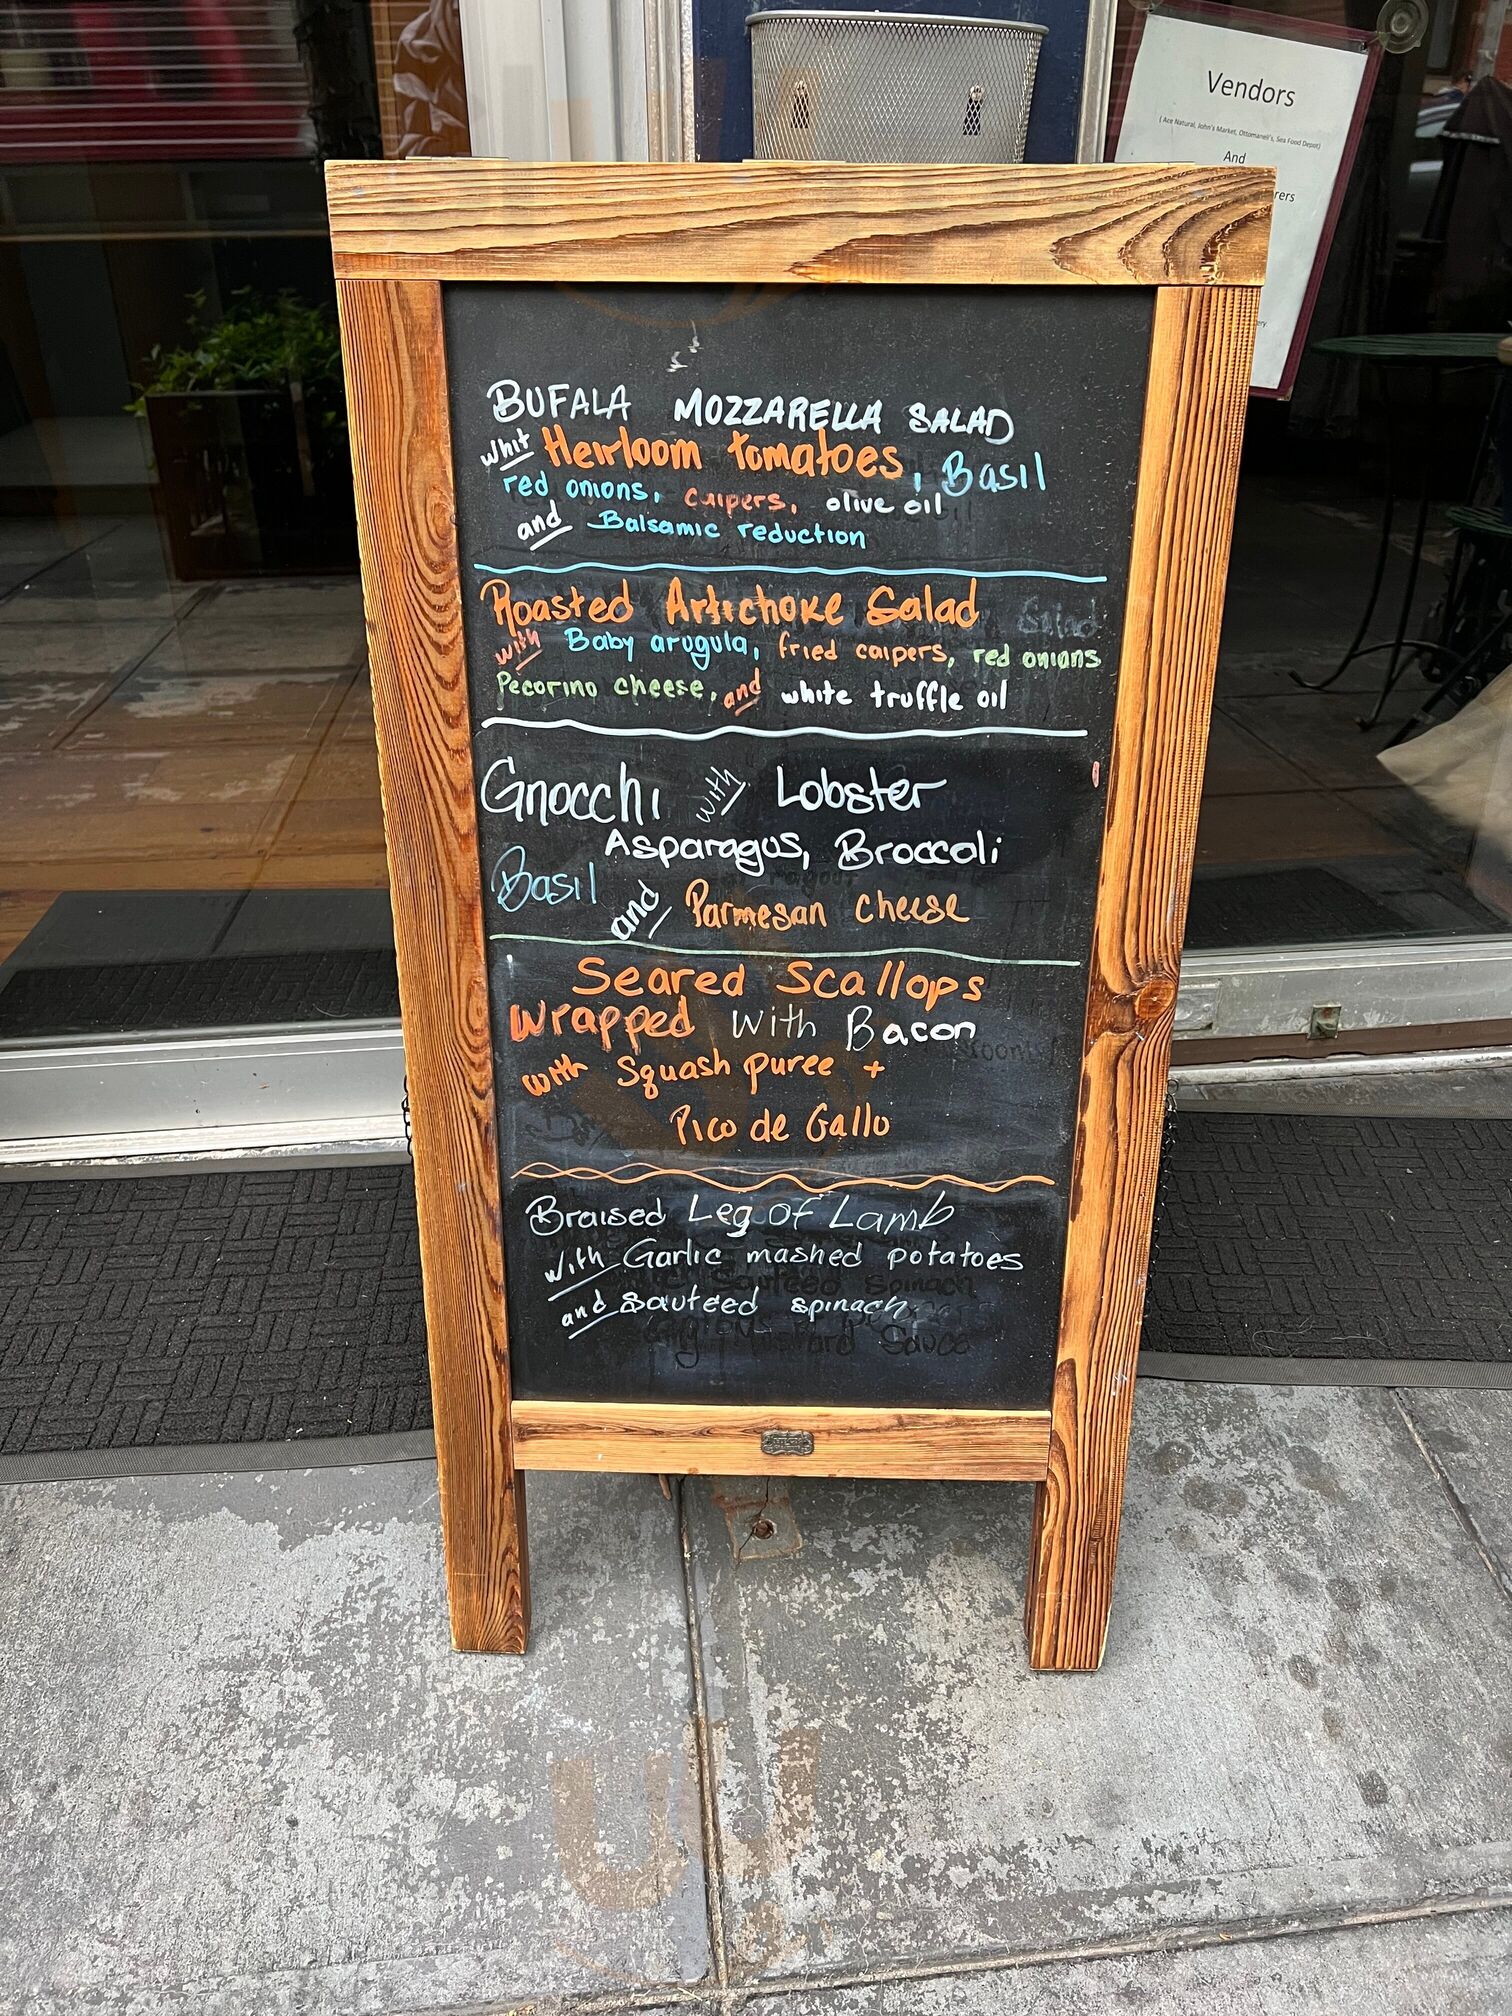 Vendors
( Ace Natural, John's Market, Ottomaneli's, Sea Food Depot)
And
BUFALA MOZZARELLA SALAD
whit Heirloom tomatoes, Basil
red onions, caipers, olive oil
and Balsamic reduction
Roasted Artichoke Salad
with Baby arugula, fried caipers, red onions
Pecorino cheese, and white truffle oil
Gnocchi with Lobster
Asparagus, Broccoli
Basil and Parmesan cheese
Seared Scallops
Wrapped With Bacon
with Squash puree +
Pico de Gallo
Braised Leg of Lamb
with Garlic mashed potatoes
and Sauteed spinach